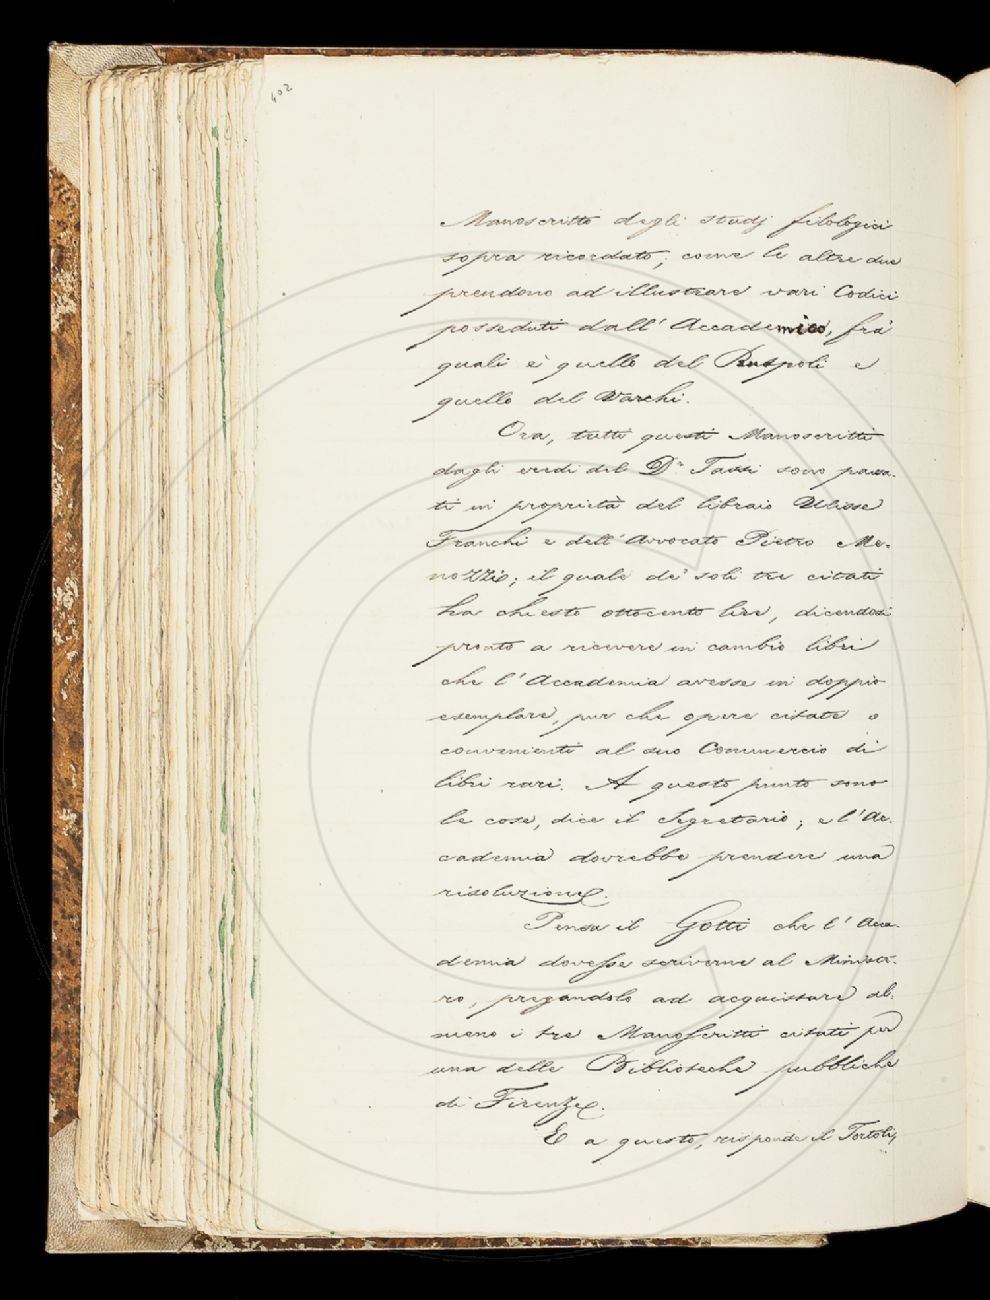 402
Manoscritto degli studj filologici
sopra ricordato; come le altre due
prendono ad illustrare vari Codici
posseduti dall' Accademico, fra'
quali è quello del Ruspoli e
quello del Varchi.
Ora, tutti questi Manoscritti
dagli eredi del Dr Tassi sono passa-
ti in proprietà del libraio Ulisse
Franchi e dell' Avvocato Pietro Me-
nozzi; il quale de' soli tre citati
ha chiesto ottocento lire, dicendosi
pronto a ricevere in cambio libri
che l' Accademia avesse in doppio
esemplare, pur che opere citate o
convenienti al suo Commercio di
libri rari. A questo punto sono
le cose, dice il Segretario; e l' Ac-
cademia dovrebbe prendere una
risoluzione.
Pensa il Gotti che l' Acca-
demia dovesse scriverne al Ministe-
ro, pregandolo ad acquistare al-
meno i tre Manoscritti citati per
una delle Biblioteche pubbliche
di Firenze.
E a questo, risponde il Tortoli,